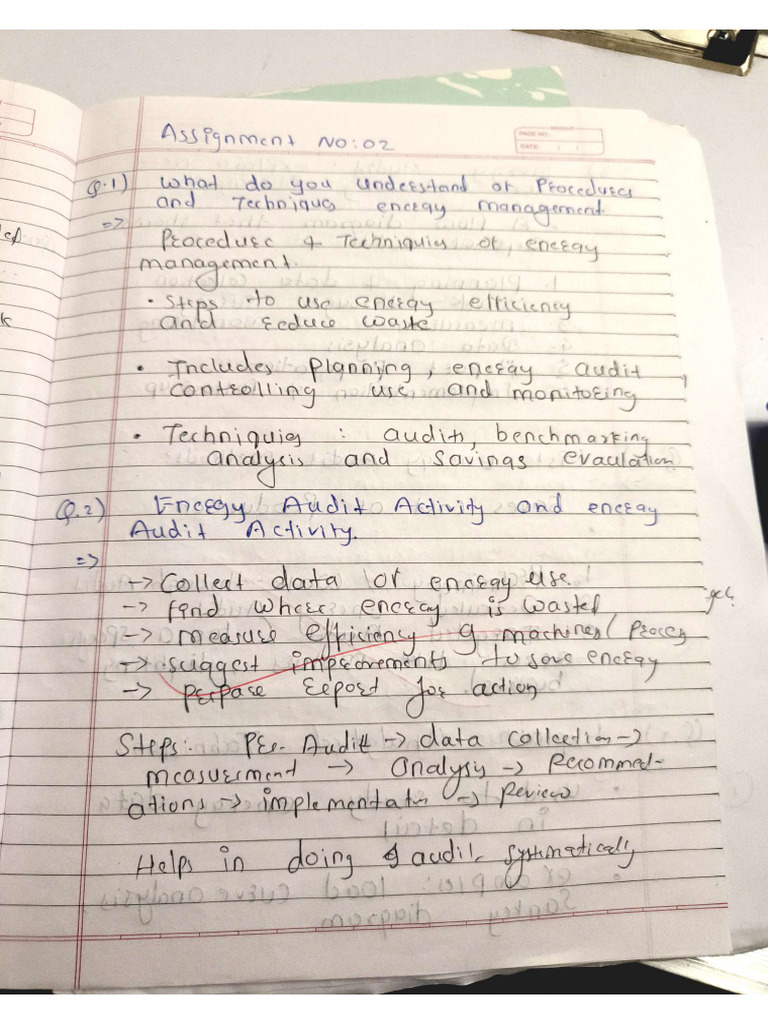 BRIGHT
PAGE NO.:
DATE: / /
Assignment No:02
Q.1) What do you understand of Procedures
and Techniques energy management.
=>
Procedure & Techniques of energy
management.
• Steps to use energy efficiency
and reduce waste
• Includes planning, energy audit,
controlling use and monitoring
• Techniques : audits, benchmarking
analysis and savings evaculation
Q.2) Energy Audit Activity and energy
Audit Activity.
=>
-> Collect data of energy use.
-> find where energy is wasted
-> measure efficiency of machines/Process
-> suggest improvements to save energy
-> Perpare report for action
Steps: Pre-Audit -> data collection ->
measurement -> analysis -> Recommed-
ations -> implementatn -> Review
Helps in doing audit systematically